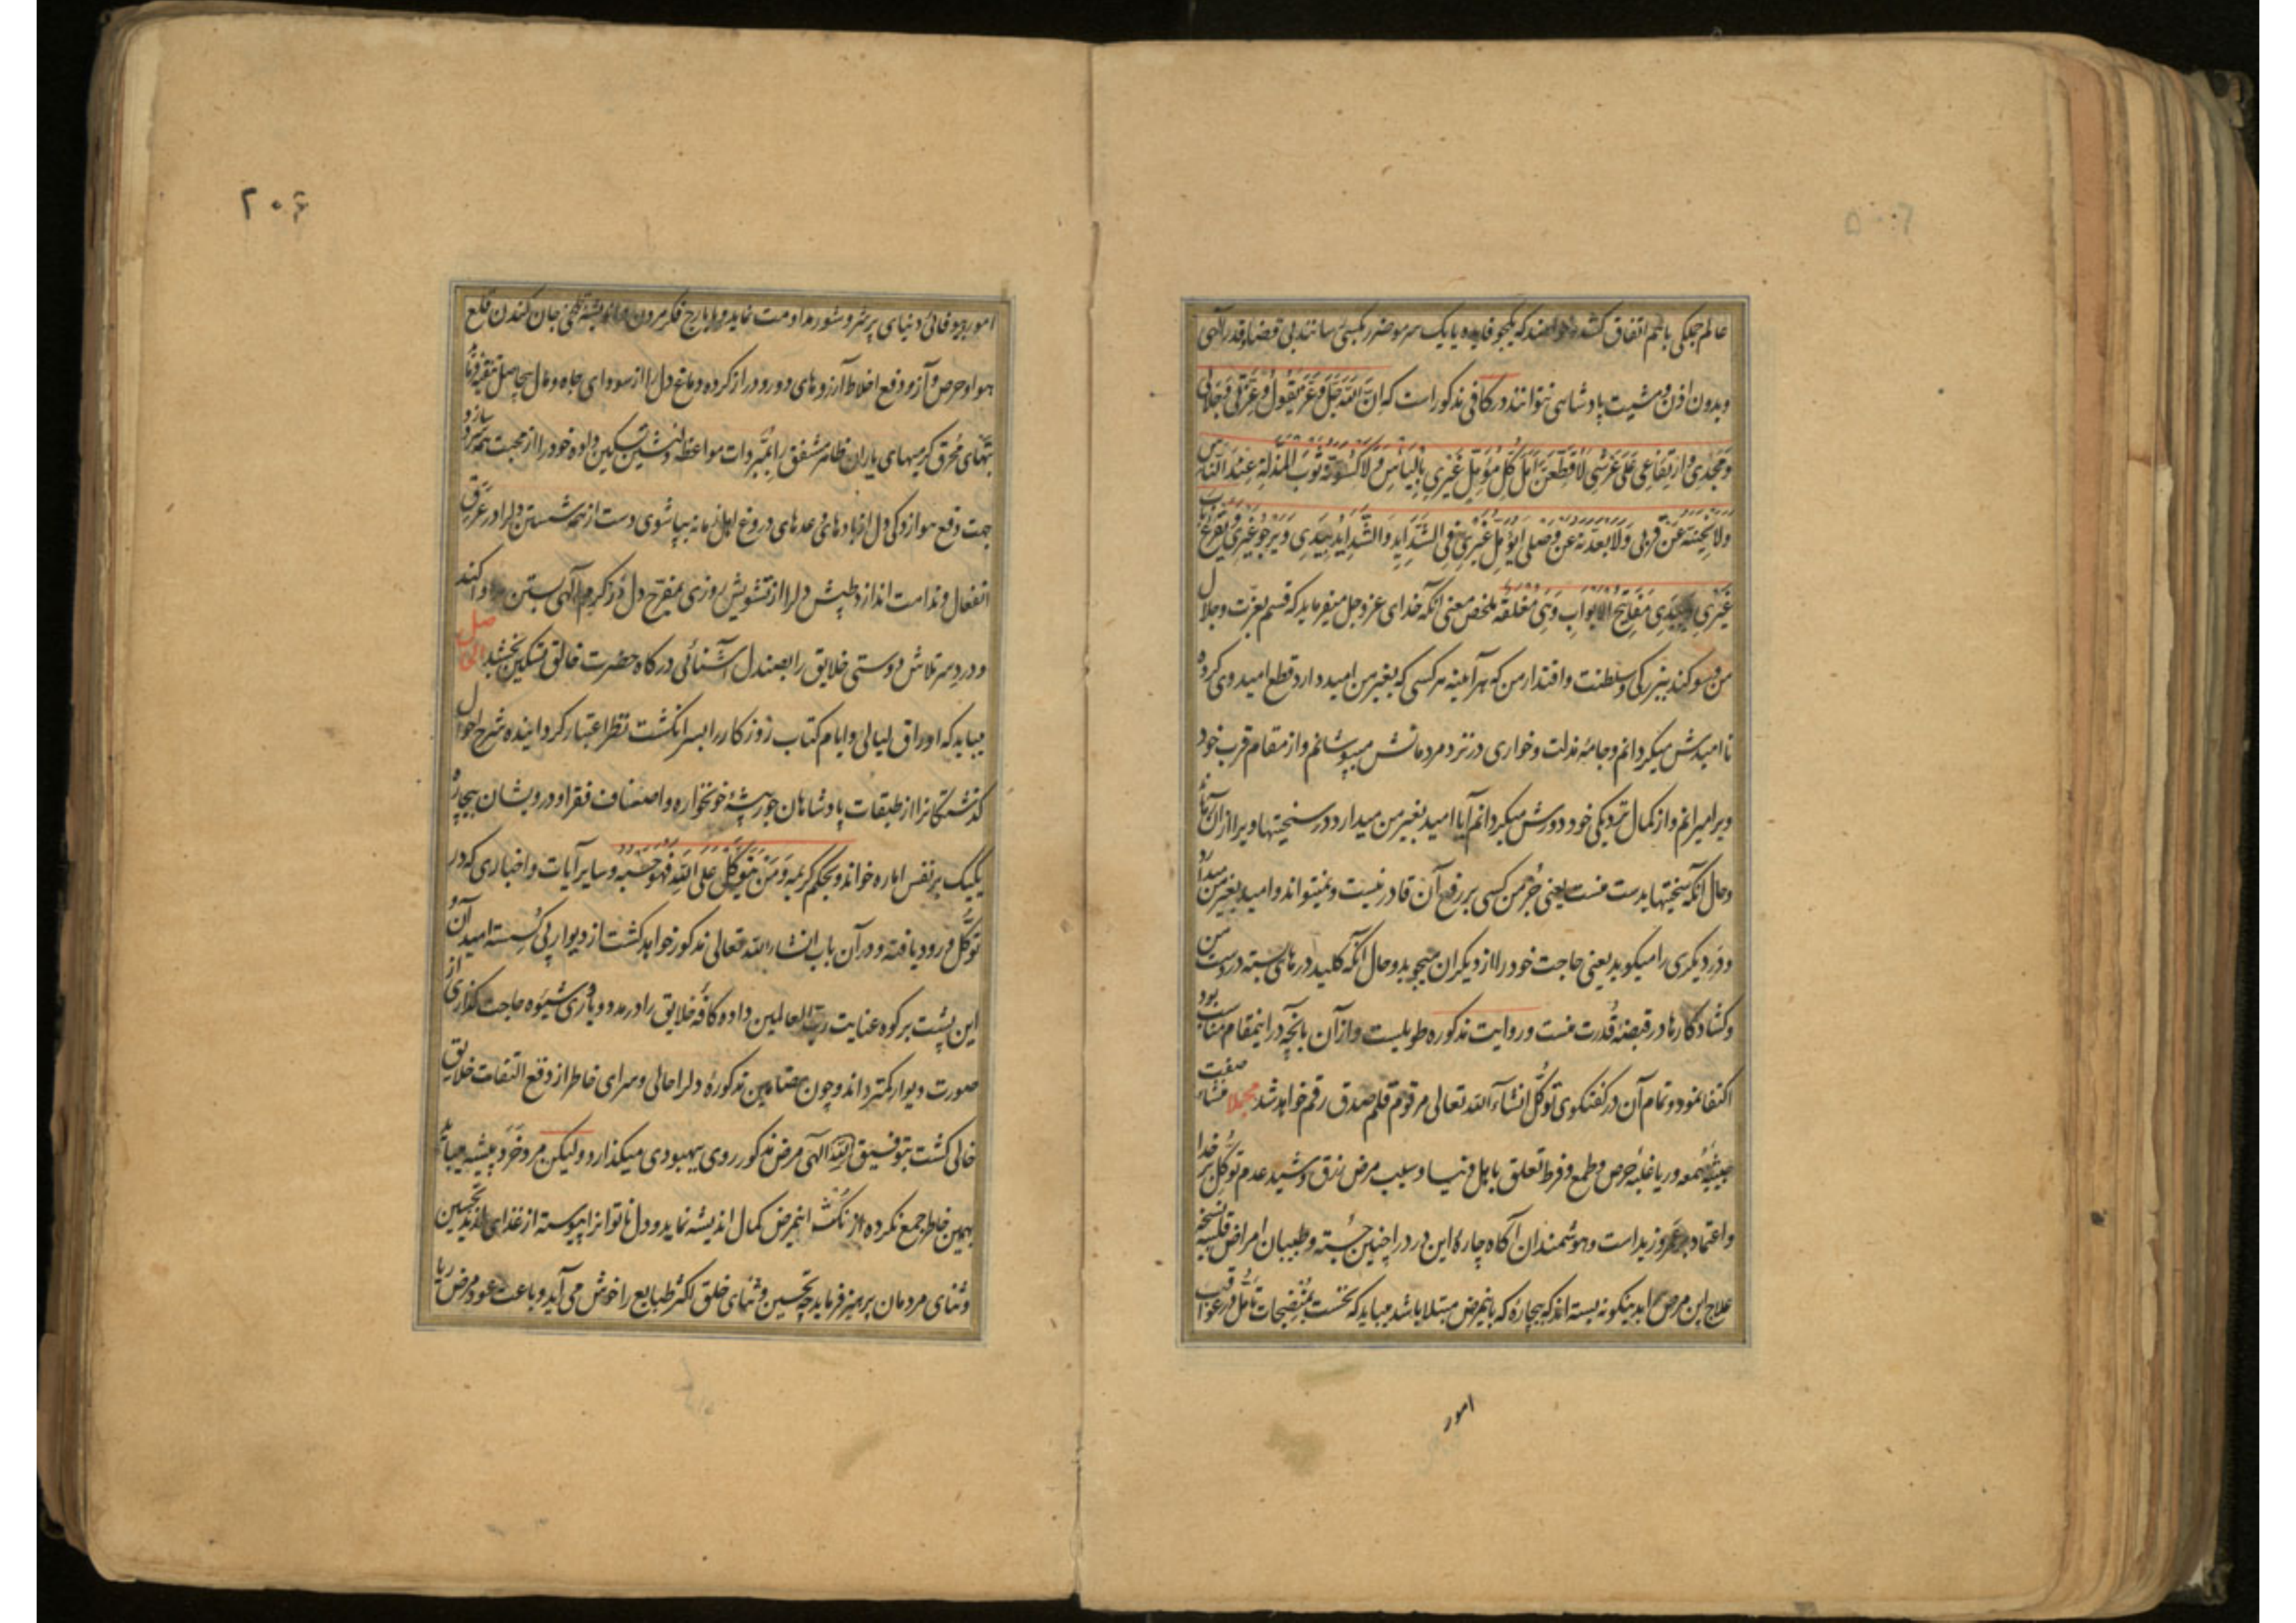 عالم جملگی با هم اتفاق کنند و خواهند که یکجو فایده یا یک سرمو ضرر بکسی رسانند بی قضا و قدر الهی
و بدون اذن و مشیت پادشاهی نتوانند در کافی مذکور است که اِنَّ اللّهَ جَلَّ وَعَزَّ یَقُولُ وَعِزَّتی وَجَلالی
وَمَجدی وَارتِفاعی عَلی عَرشی لَاَقطَعَنَّ اَمَلَ کُلِّ مُؤَمِّلٍ غَیری بِالیَأسِ وَلَاَکسُوَنَّهُ ثَوبَ المَذَلَّةِ عِندَ النّاسِ
وَلَاُنَحِّیَنَّهُ عَن قُربی وَلَاُبَعِّدَنَّهُ عَن وَصلی اَیُؤَمِّلُ غَیری فِی الشَّدایِدِ وَالشَّدایِدُ بِیَدی وَیَرجُو غَیری وَیَقرَعُ بابَ
غَیری وَبِیَدی مَفاتیحُ الاَبوابِ وَهِیَ مُغلَقَةٌ ملخص معنی آنکه خدای عز و جل میفرماید که قسم بعزت و جلال
من و سوکند ببزرکی و سلطنت و اقتدار من که هر آینه هر کسی که بغیر من امید دارد قطع امید وی کرده
ناامیدش میکردانم و جامه مذلت و خواری در نزد مردمانش میپوشانم و از مقام قرب خود
ویرا میرانم و از کمال نزدیکی خود دورش میکردانم آیا امید بغیر من میدارد در سختیها و
و حال آنکه سختیها بدست منست یعنی جز من کسی بر رفع آن قادر نیست و نمیتواند و امید بغیر من میدارد
و در دیکری را میکوبد یعنی حاجت خود را از دیکران میجوید و حال آنکه کلید درهای بسته در دست من
و کشاد کارها در قبضه قدرت منست و روایت مذکوره طویلست و از آن بانچه در اینمقام مناسب بود
اکتفا نمود و تمام آن در کفتکوی توکل انشاء الله تعالی مرقوم قلم صدق رقم خواهد شد مجملا منشاء صفت
خبیثه سمعه و ریا غلبه حرص و طمع و فرط تعلق باهل دنیا و سبب مرض زرق و شید عدم توکل بر خدا
و اعتماد بر عمرو و زید است و هوشمندان آکاه چاره این درد را چنین جسته و طبیبان امراض قلبیه نسخه
علاج این مرض را بدینکونه بسته اند که بیچاره که باینمرض مبتلا باشد میباید که نخست بمنضجات تامل در عواقب
امور
۲۰۶
امور بیوفائی دنیای پر شر و شور مداومت نماید و بایارج فکر مردن و اندیشه تلخی جان کندن قلع
هوا و حرص و آز و دفع اخلاط آرزوهای دور و دراز کرده دماغ دل را از سودای جاه و مال بیحاصل تنقیه نماید
تبهای محرق کرمیهای یاران ظاهر مشفق را بمبردات مواعظ دلنشین تسکین داده خود را از محبت همه سرد سازد و
جهت دفع هوازدکی دل از بادهای وعدهای دروغ اهل زمانه بپاشوی دست از همه شستن دلرا در عرق
انفعال و ندامت اندازد طپش دلرا از تشویش روزی بمفرح دل در کرم الهی بستن مداوا کند
و درد سر تلاش دوستی خلایق را بصندل آشنائی درکاه حضرت خالق تسکین بخشد الحاصل
میباید که اوراق لیالی و ایام کتاب روزکار را بسر انکشت نظر اعتبار کردانیده شرح احوال
کذشتکانرا از طبقات پادشاهان جورپیشه خونخواره و اصناف فقرا و درویشان بیچاره
یکیک بر نفس اماره خواند و بحکم کریمه وَمَن یَتَوَکَّل عَلَی اللّهِ فَهُوَ حَسبُهُ و سایر آیات و اخباری که در
توکل ورود یافته و در آن باب انشاء الله تعالی مذکور خواهد کشت از دیوار پی کسسته امید آن و
این پشت بر کوه عنایت رب العالمین داده و کافه خلایق را در مدد و یاری شیوه حاجت کذاری از
صورت دیوار کمتر داند و چون بمضامین مذکوره دلرا خالی و سرای خاطر از دفع التفات خلایق
خالی کشت بتوفیق الله الهی مرض مذکور روی ببهبودی میکذارد و لیکن مرد خرد پیشه میباید
بهمین خاطر جمع نکرده از نکث اینمرض کمال اندیشه نماید و دل ناتوانرا پیوسته از غذای لذیذ تحسین
و ثنای مردمان پرهیز فرماید چه تحسین و ثنای خلق اکثر طبایع را خوش می آید و باعث عود مرض ریا